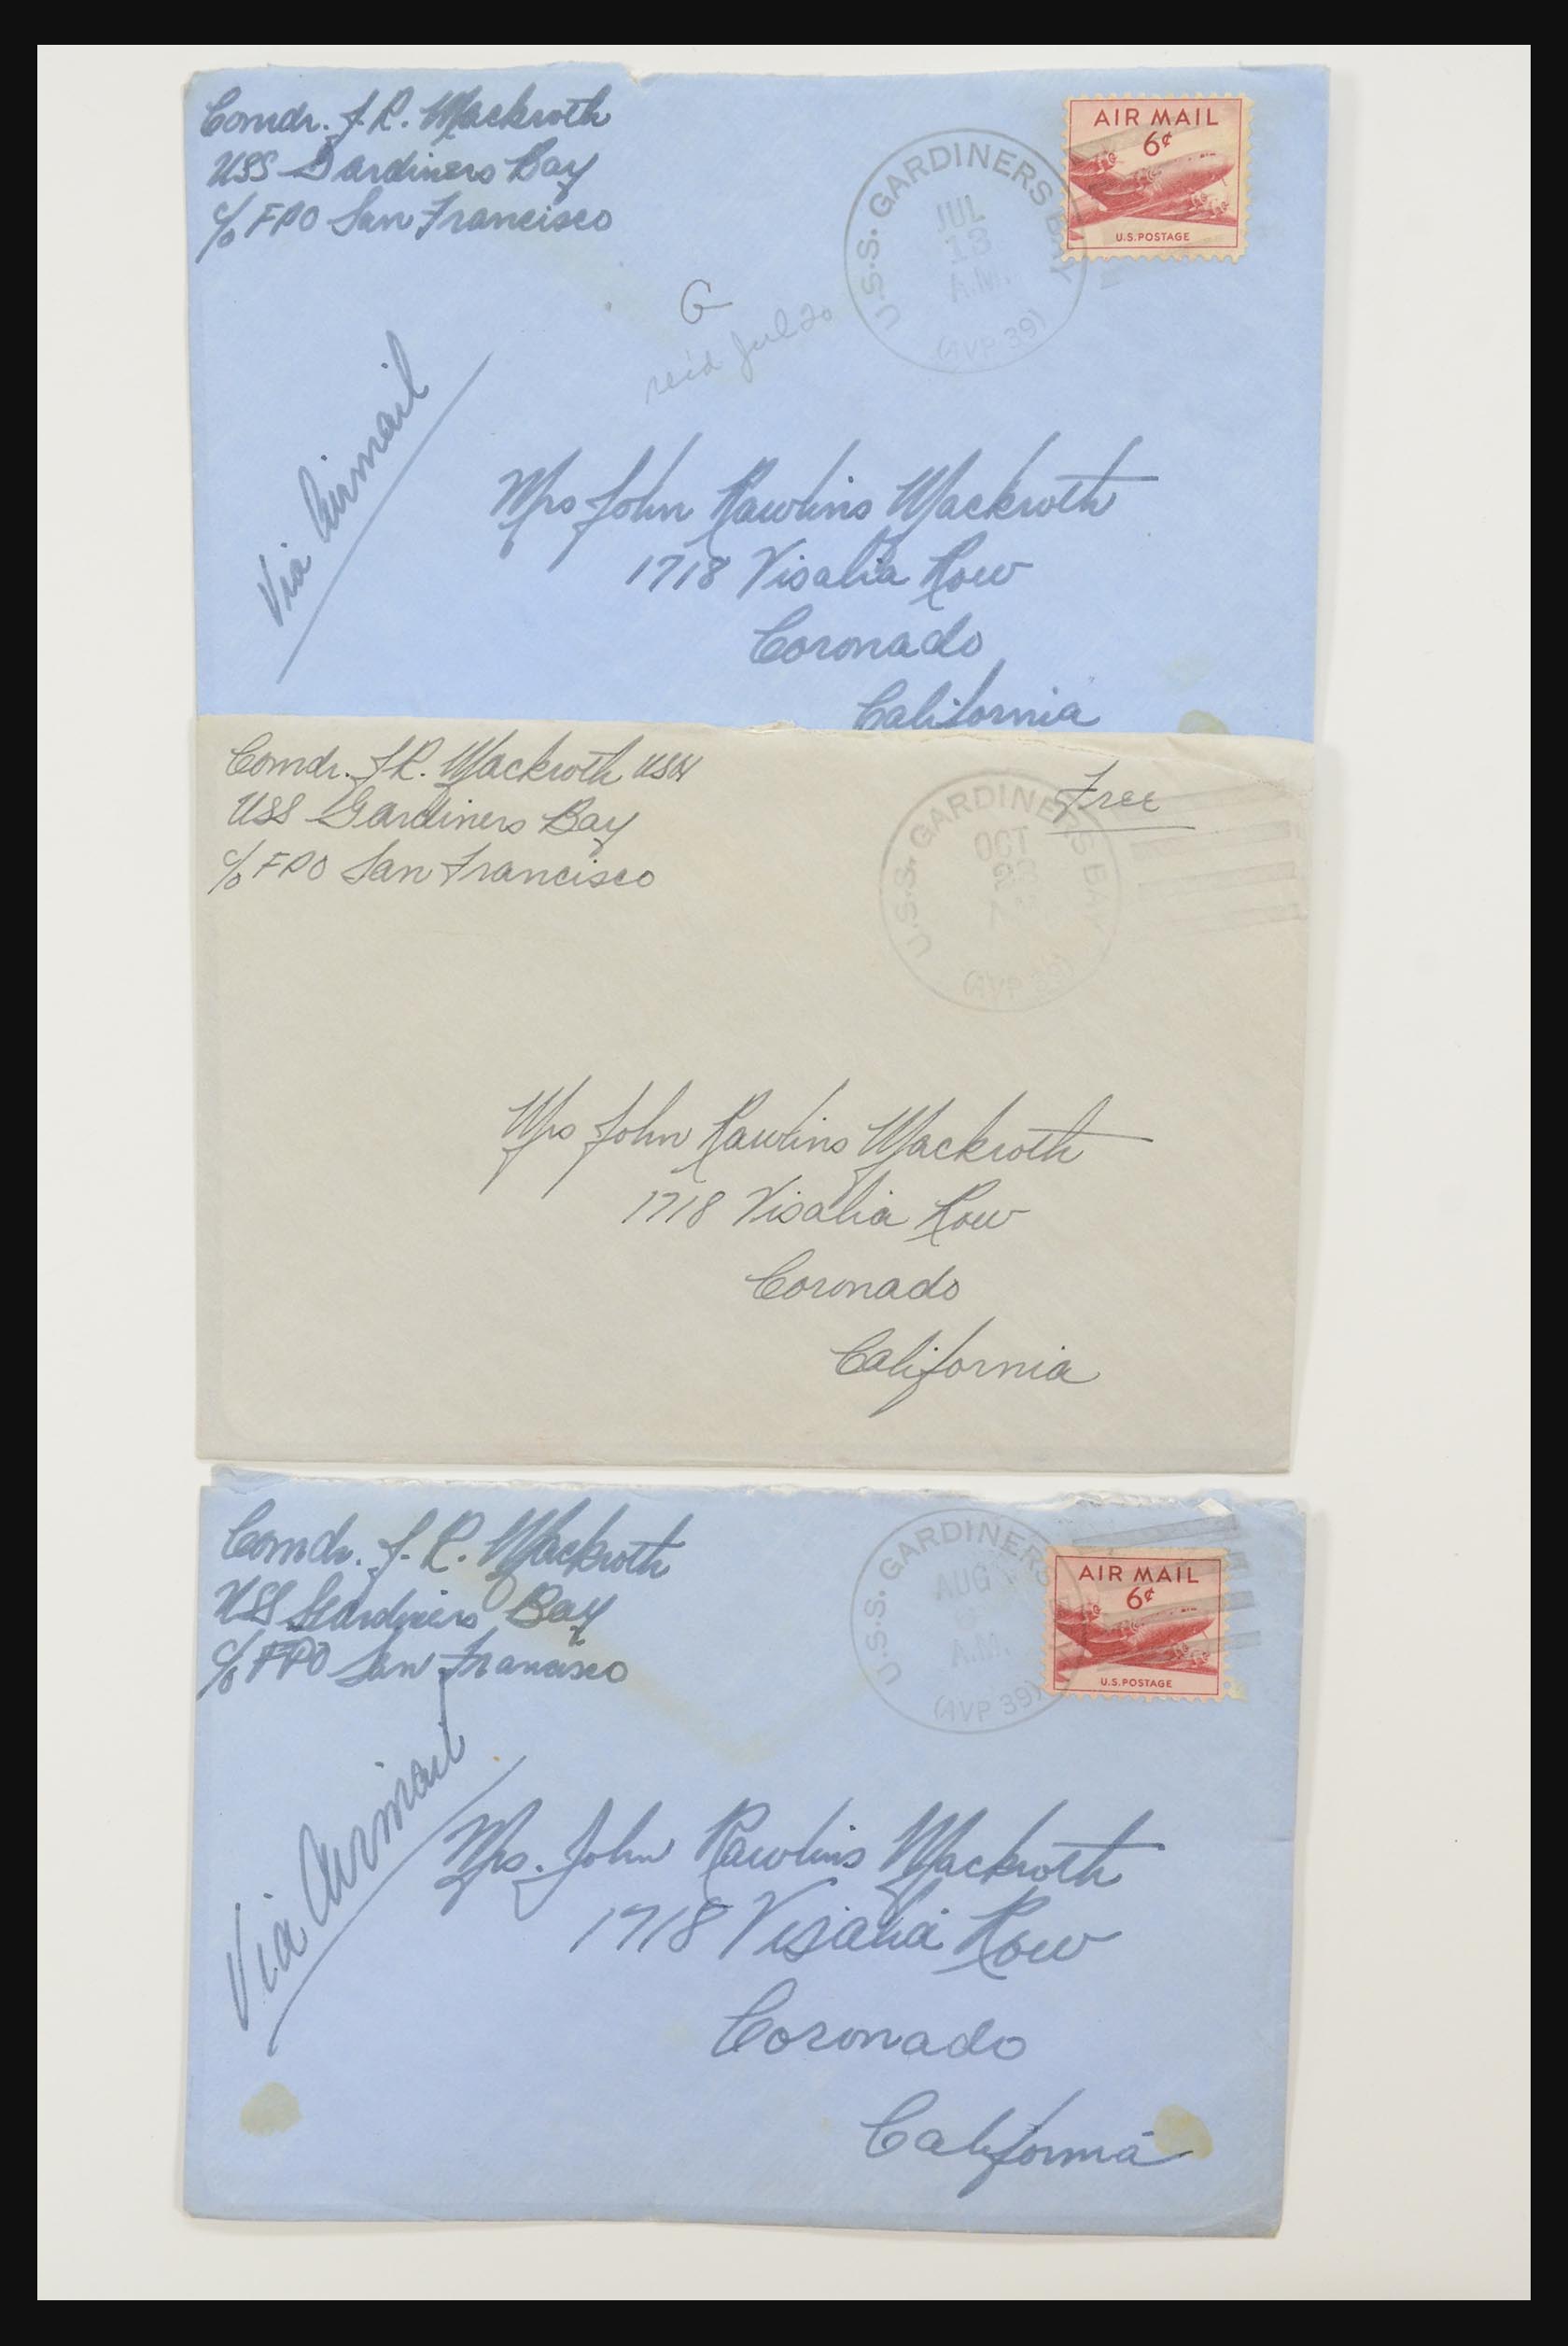 Comdr. J.R. Mackroth
USS Gardiners Bay
c/o FPO San Francisco
AIR MAIL
6¢
U.S. POSTAGE
U.S.S. GARDINERS BAY
JUL
13
A.M.
(AVP 39)
G
rec'd Jul 20
Via Airmail
Mrs John Rawlins Mackroth
1718 Visalia Row
Coronado
California
Comdr. J.R. Mackroth USN
USS Gardiners Bay
c/o FPO San Francisco
Free
U.S.S. GARDINERS BAY
OCT
(AVP 39)
Mrs John Rawlins Mackroth
1718 Visalia Row
Coronado
California
Comdr. J. R. Mackroth
USS Gardiners Bay
c/o FPO San Francisco
AIR MAIL
6¢
U.S. POSTAGE
U.S.S. GARDINERS
AUG
A.M.
(AVP 39)
Via Airmail
Mrs. John Rawlins Mackroth
1718 Visalia Row
Coronado
California